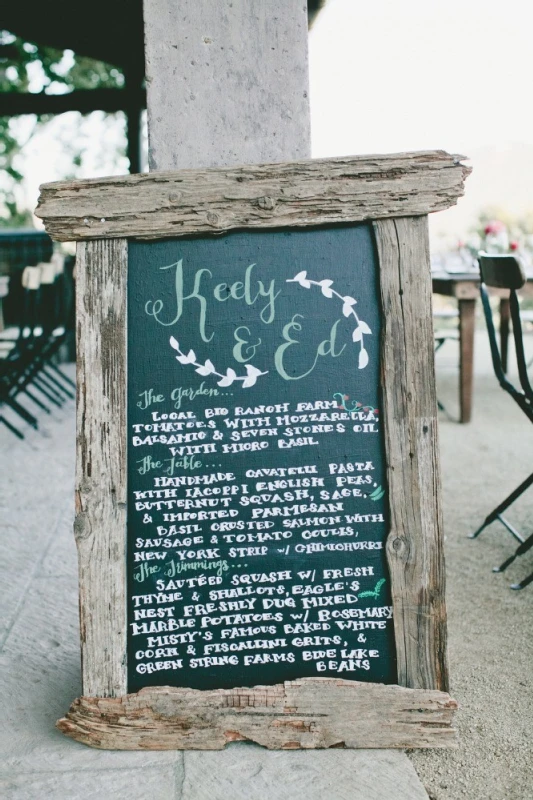 Keely
& Ed
The Garden...
LOCAL BIO RANCH FARM
TOMATOES WITH MOZZARELLA,
BALSAMIC & SEVEN STONES OIL
WITH MICRO BASIL
The Table...
HANDMADE CAVATELLI PASTA
WITH IACOPPI ENGLISH PEAS,
BUTTERNUT SQUASH, SAGE,
& IMPORTED PARMESAN
BASIL CRUSTED SALMON WITH
SAUSAGE & TOMATO COULIS,
NEW YORK STRIP w/ CHIMICHURRI
The Trimmings...
SAUTÉED SQUASH W/ FRESH
THYME & SHALLOTS, EAGLE'S
NEST FRESHLY DUG MIXED
MARBLE POTATOES W/ ROSEMARY
MISTY'S FAMOUS BAKED WHITE
CORN & FISCALINI GRITS, &
GREEN STRING FARMS BLUE LAKE
BEANS